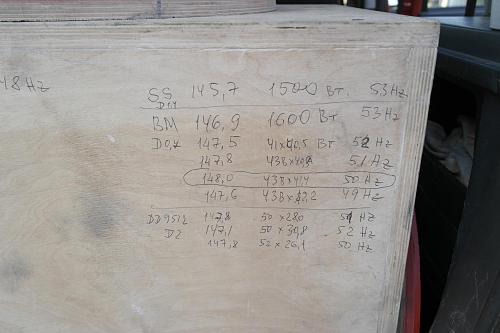 48Hz
SS 145,7 1500 Вт. 53Hz
D1,1
BM 146,9 1600 Вт 53Hz
147,5 Вт 52 Hz
147,8 51 Hz
148,0 43В×41,4 50 Hz
147,6 43В×42,2 49 Hz
DD9512 147,8 50×28,0 51 Hz
D2 147,1 50×30,8 52 Hz
147,8 52×26,1 50 Hz